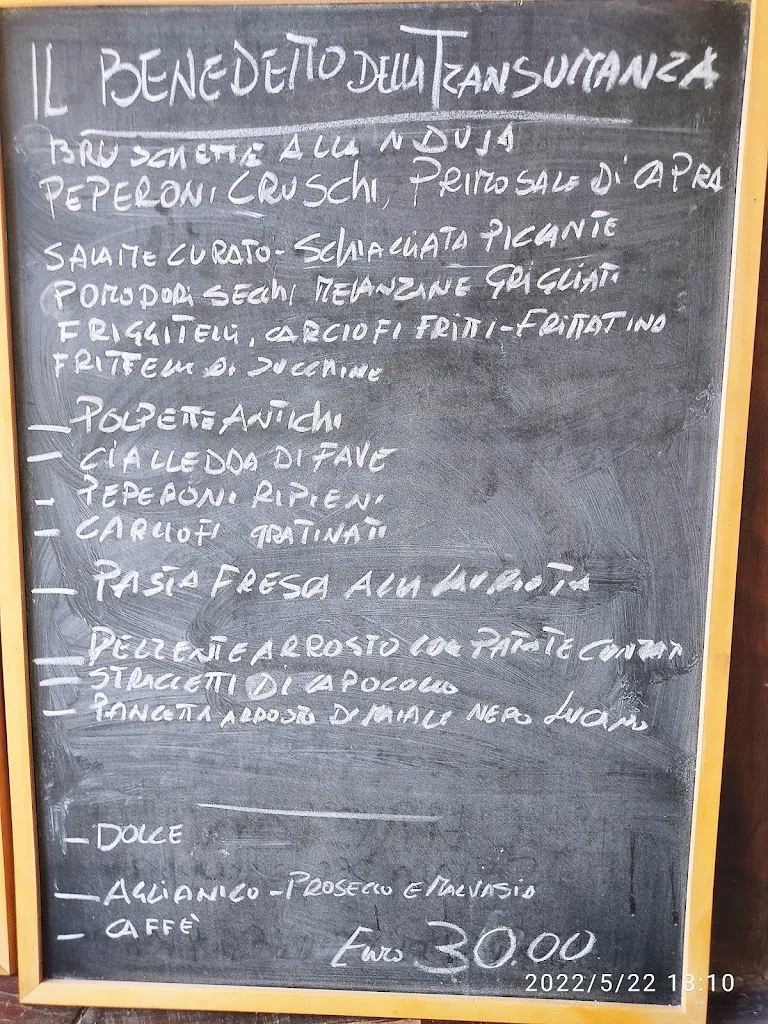 IL BENEDETTO DELLA TRANSUMANZA
BRUSCHETTE ALLA NDUJA
PEPERONI CRUSCHI, PRIMOSALE DI CAPRA
SALAME CURATO - SCHIACCIATA PICCANTE
POMODORI SECCHI MELANZANE GRIGLIATI
FRIGGITELLI, CARCIOFI FRITTI - FRITTATINA
FRITTELLE DI ZUCCHINE
- POLPETTE ANTICHI
- CIALLEDDA DI FAVE
- PEPERONI RIPIENI
- CARCIOFI GRATINATI
- PASTA FRESCA ALLA
- PEZZENTE ARROSTO CON PATATE
- STRACCETTI DI CAPOCOLLO
- PANCETTA ARROSTO DI MAIALE NERO LUCANO
- DOLCE
- AGLIANICO - PROSECCO E MALVASIA
- CAFFÈ
Euro 30.00
2022/5/22 13:10